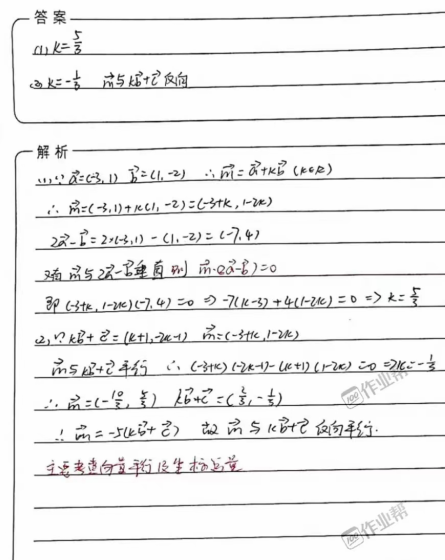 答案
(1) k=5/3
(2) k=-1/3 m⃗与kb⃗+c⃗反向
解析
(1) ∵ a⃗=(-3,1) b⃗=(1,-2) ∴ m⃗=a⃗+kb⃗ (k∈R)
∴ m⃗=(-3,1)+k(1,-2)=(-3+k,1-2k)
2a⃗-b⃗=2×(-3,1)-(1,-2)=(-7,4)
m⃗与2a⃗-b⃗垂直 则 m⃗·(2a⃗-b⃗)=0
即 (-3+k,1-2k)(-7,4)=0 ⇒ -7(k-3)+4(1-2k)=0 ⇒ k=5/3
(2) ∵ kb⃗+c⃗=(k+1,-2k-1) m⃗=(-3+k,1-2k)
m⃗与kb⃗+c⃗平行 ∴ (-3+k)(-2k-1)-(k+1)(1-2k)=0 ⇒ k=-1/3
∴ m⃗=(-10/3,5/3) kb⃗+c⃗=(2/3,-1/3)
∴ m⃗=-5(kb⃗+c⃗) 故 m⃗与kb⃗+c⃗反向平行.
主要考查向量平行及坐标运算
作业帮
作业帮